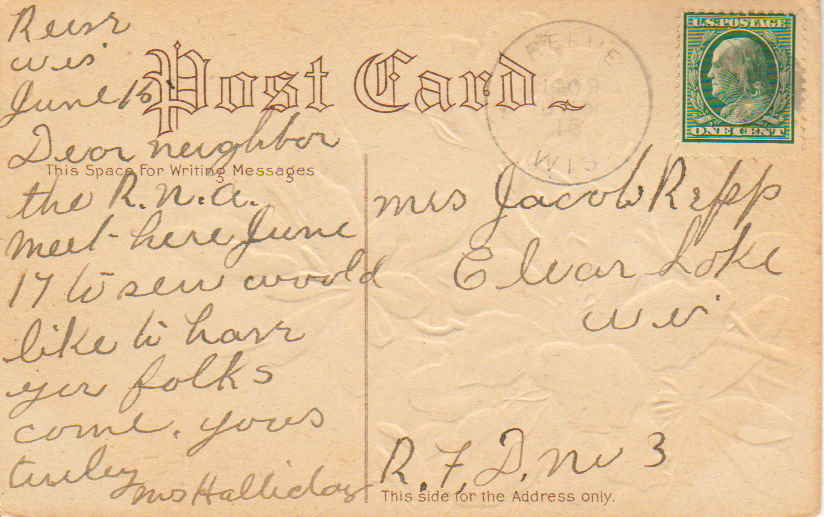 Reeve
wis
June 16
Post Card
Dear neighbor
This Space For Writing Messages
the R.N.A.
meet here June
17 to sew would
like to have
yer folks
come. yours
truley
Mrs Halliday
U.S. POSTAGE
ONE CENT
1909
WIS
Mrs Jacob Repp
Clear Lake
Wis
R. F. D. No 3
This side for the Address only.